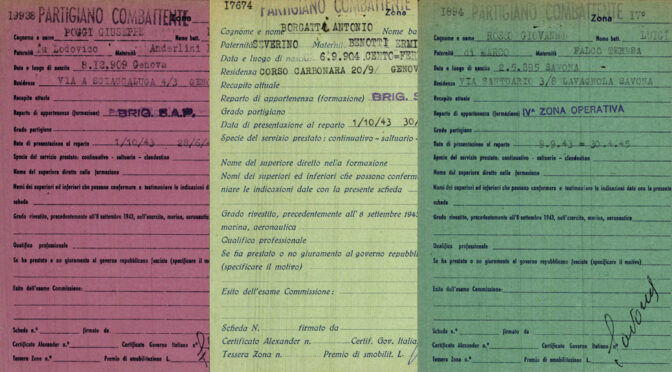 19938 PARTIGIANO COMBATTENTE
Zona
Cognome e nome POGGI GIUSEPPE Nome bat.
Paternità fu Lodovico Maternità Anderlini
Data e luogo di nascita 8.12.909 Genova
Residenza VIA A SCIACCALUGA 4/3
Recapito attuale
Reparto di appartenenza (formazione) BRIG. S.A.P.
Grado partigiano
Data di presentazione al reparto 1/10/43
Specie del servizio prestato: continuativo - saltuario - clandestino
Nome del superiore diretto nella formazione
Nomi dei superiori ed inferiori che possono confermare e testimoniare le indicazioni
scheda
Grado rivestito, precedentemente all'8 settembre 1943, nell'esercito, marina, aeronautica
Qualifica professionale
Se ha prestato o no giuramento al governo repubblicano fascista (specificare il motivo)
Esito dell'esame Commissione:
Scheda n.° firmato da
Certificato Alexander n.° Certificato Governo Italiano n.°
Tessera Zona n.° Premio di smobilitazione L.
17674 PARTIGIANO COMBATTENTE
Zona
Cognome e nome BORGATTI ANTONIO Nome ba
Paternità SEVERINO Maternità BENOTTI ERMI
Data e luogo di nascita 6.9.904 CENTO-FER
Residenza CORSO CARBONARA 20/9 GENOV
Recapito attuale
Reparto di appartenenza (formazione) BRIG. S
Grado partigiano
Data di presentazione al reparto 1/10/43 30/
Specie del servizio prestato: continuativo - saltuario -
Nome del superiore diretto nella formazione
Nomi dei superiori ed inferiori che possono confermare e testimo-
niare le indicazioni date con la presente scheda
Grado rivestito, precedentemente all' 8 settembre 1943
marina, aeronautica
Qualifica professionale
Se ha prestato o no giuramento al governo repubbli
(specificare il motivo)
Esito dell'esame Commissione:
Scheda N. firmato da
Certificato Alexander n. Certificato Gov. Italia
Tessera Zona n. Premio di smobilit. L.
1894 PARTIGIANO COMBATTENTE
Zona IV°
Cognome e nome ROSSI GIOVANNI Nome bat. LUIGI
Paternità di MARCO Maternità FALCO TERESA
Data e luogo di nascita 2.5.925 SAVONA
Residenza VIA SANTUARIO 3/8 LAVAGNOLA SAVONA
Recapito attuale
Reparto di appartenenza (formazione) IVª ZONA OPERATIVA
Grado partigiano
Data di presentazione al reparto 9.9.43 = 30.4.45
Specie del servizio prestato: continuativo - saltuario - clandestino
Nome del superiore diretto nella formazione
Nomi dei superiori ed inferiori che possono confermare e testimoniare le indicazioni date con la presente
scheda
Grado rivestito, precedentemente all'8 settembre 1943, nell'esercito, marina, aeronautica
Qualifica professionale
Se ha prestato o no giuramento al governo repubblicano fascista (specificare il motivo)
Esito dell'esame Commissione:
Scheda n.° firmato da
Certificato Alexander n.° Certificato Governo Italiano n.°
Tessera Zona n.° Premio di smobilitazione L.
Savona